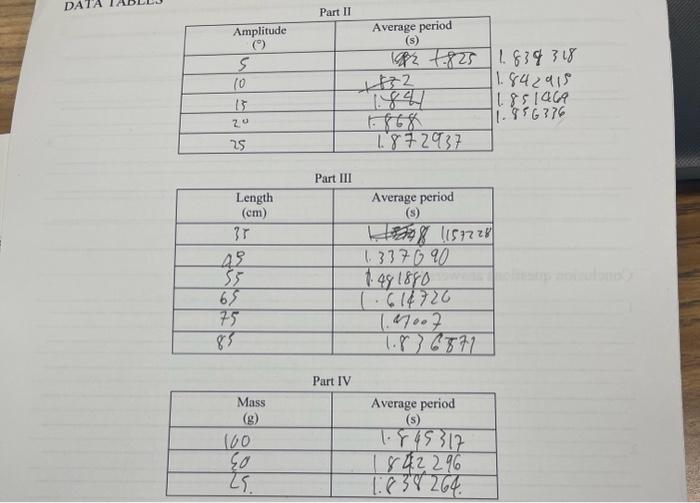 DATA TABLES
Part II
Amplitude (°) Average period (s)
5 1.825 1.839318
10 1.832 1.842915
15 1.841 1.851469
20 1.868 1.856336
25 1.872937
Part III
Length (cm) Average period (s)
35 1.157228
45 1.337690
55 1.491880
65 1.614726
75
85 1.836871
Part IV
Mass (g) Average period (s)
100 1.845317
50 1.842296
25. 1.838264